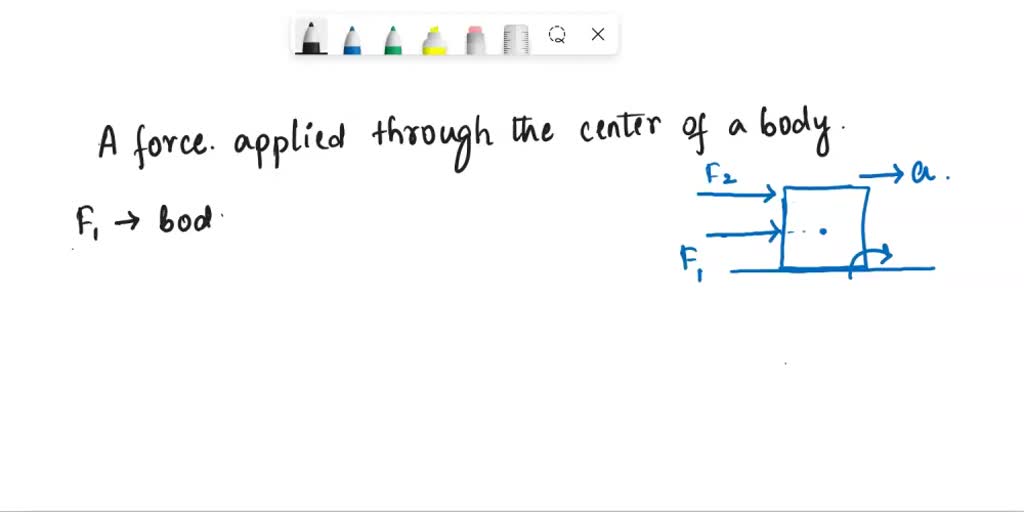 A force. applied through the center of a body.
F2
→ a.
F1 → bod
F1